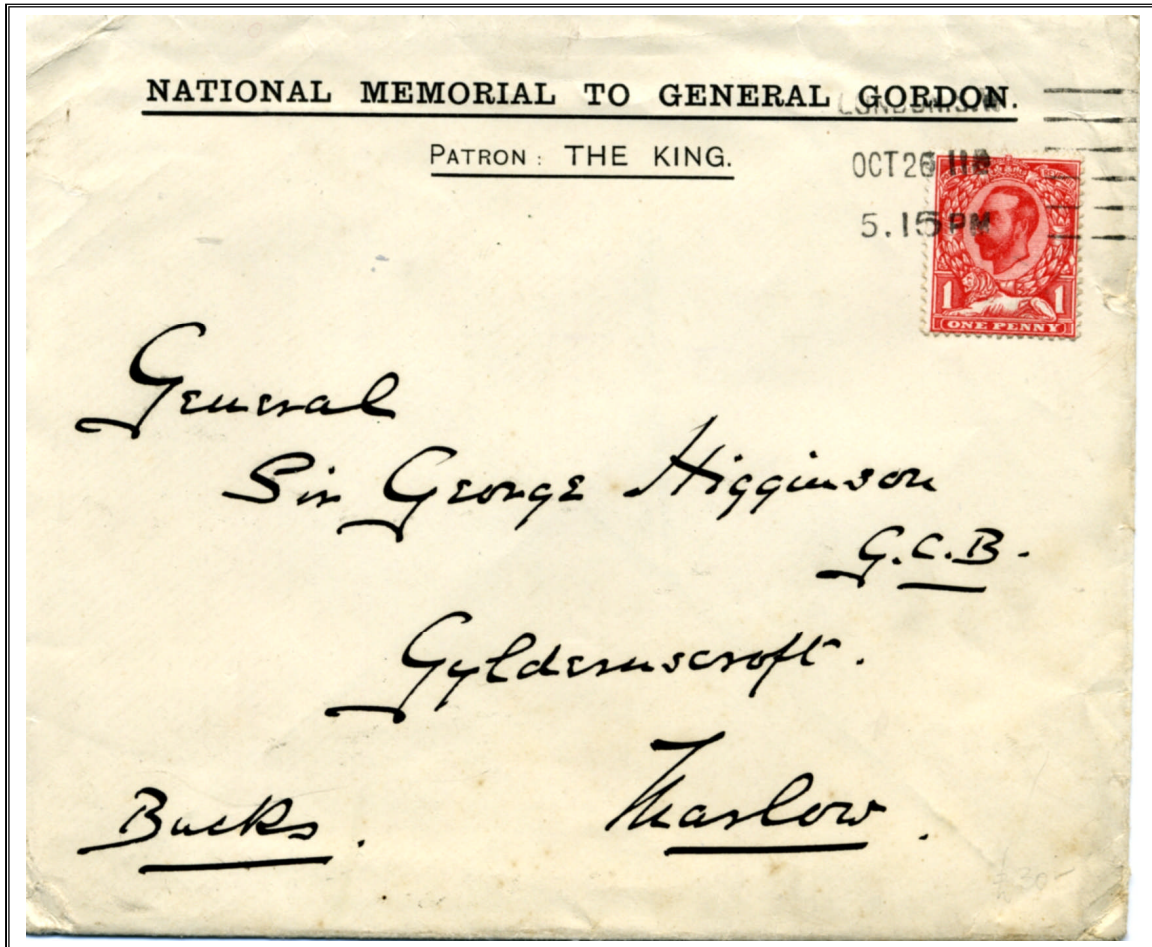 NATIONAL MEMORIAL TO GENERAL GORDON.
PATRON: THE KING.
OCT 26
5.15 PM
1 1
ONE PENNY
General
Sir George Higginson
G.C.B.
Gyldernscroft.
Marlow.
Bucks.